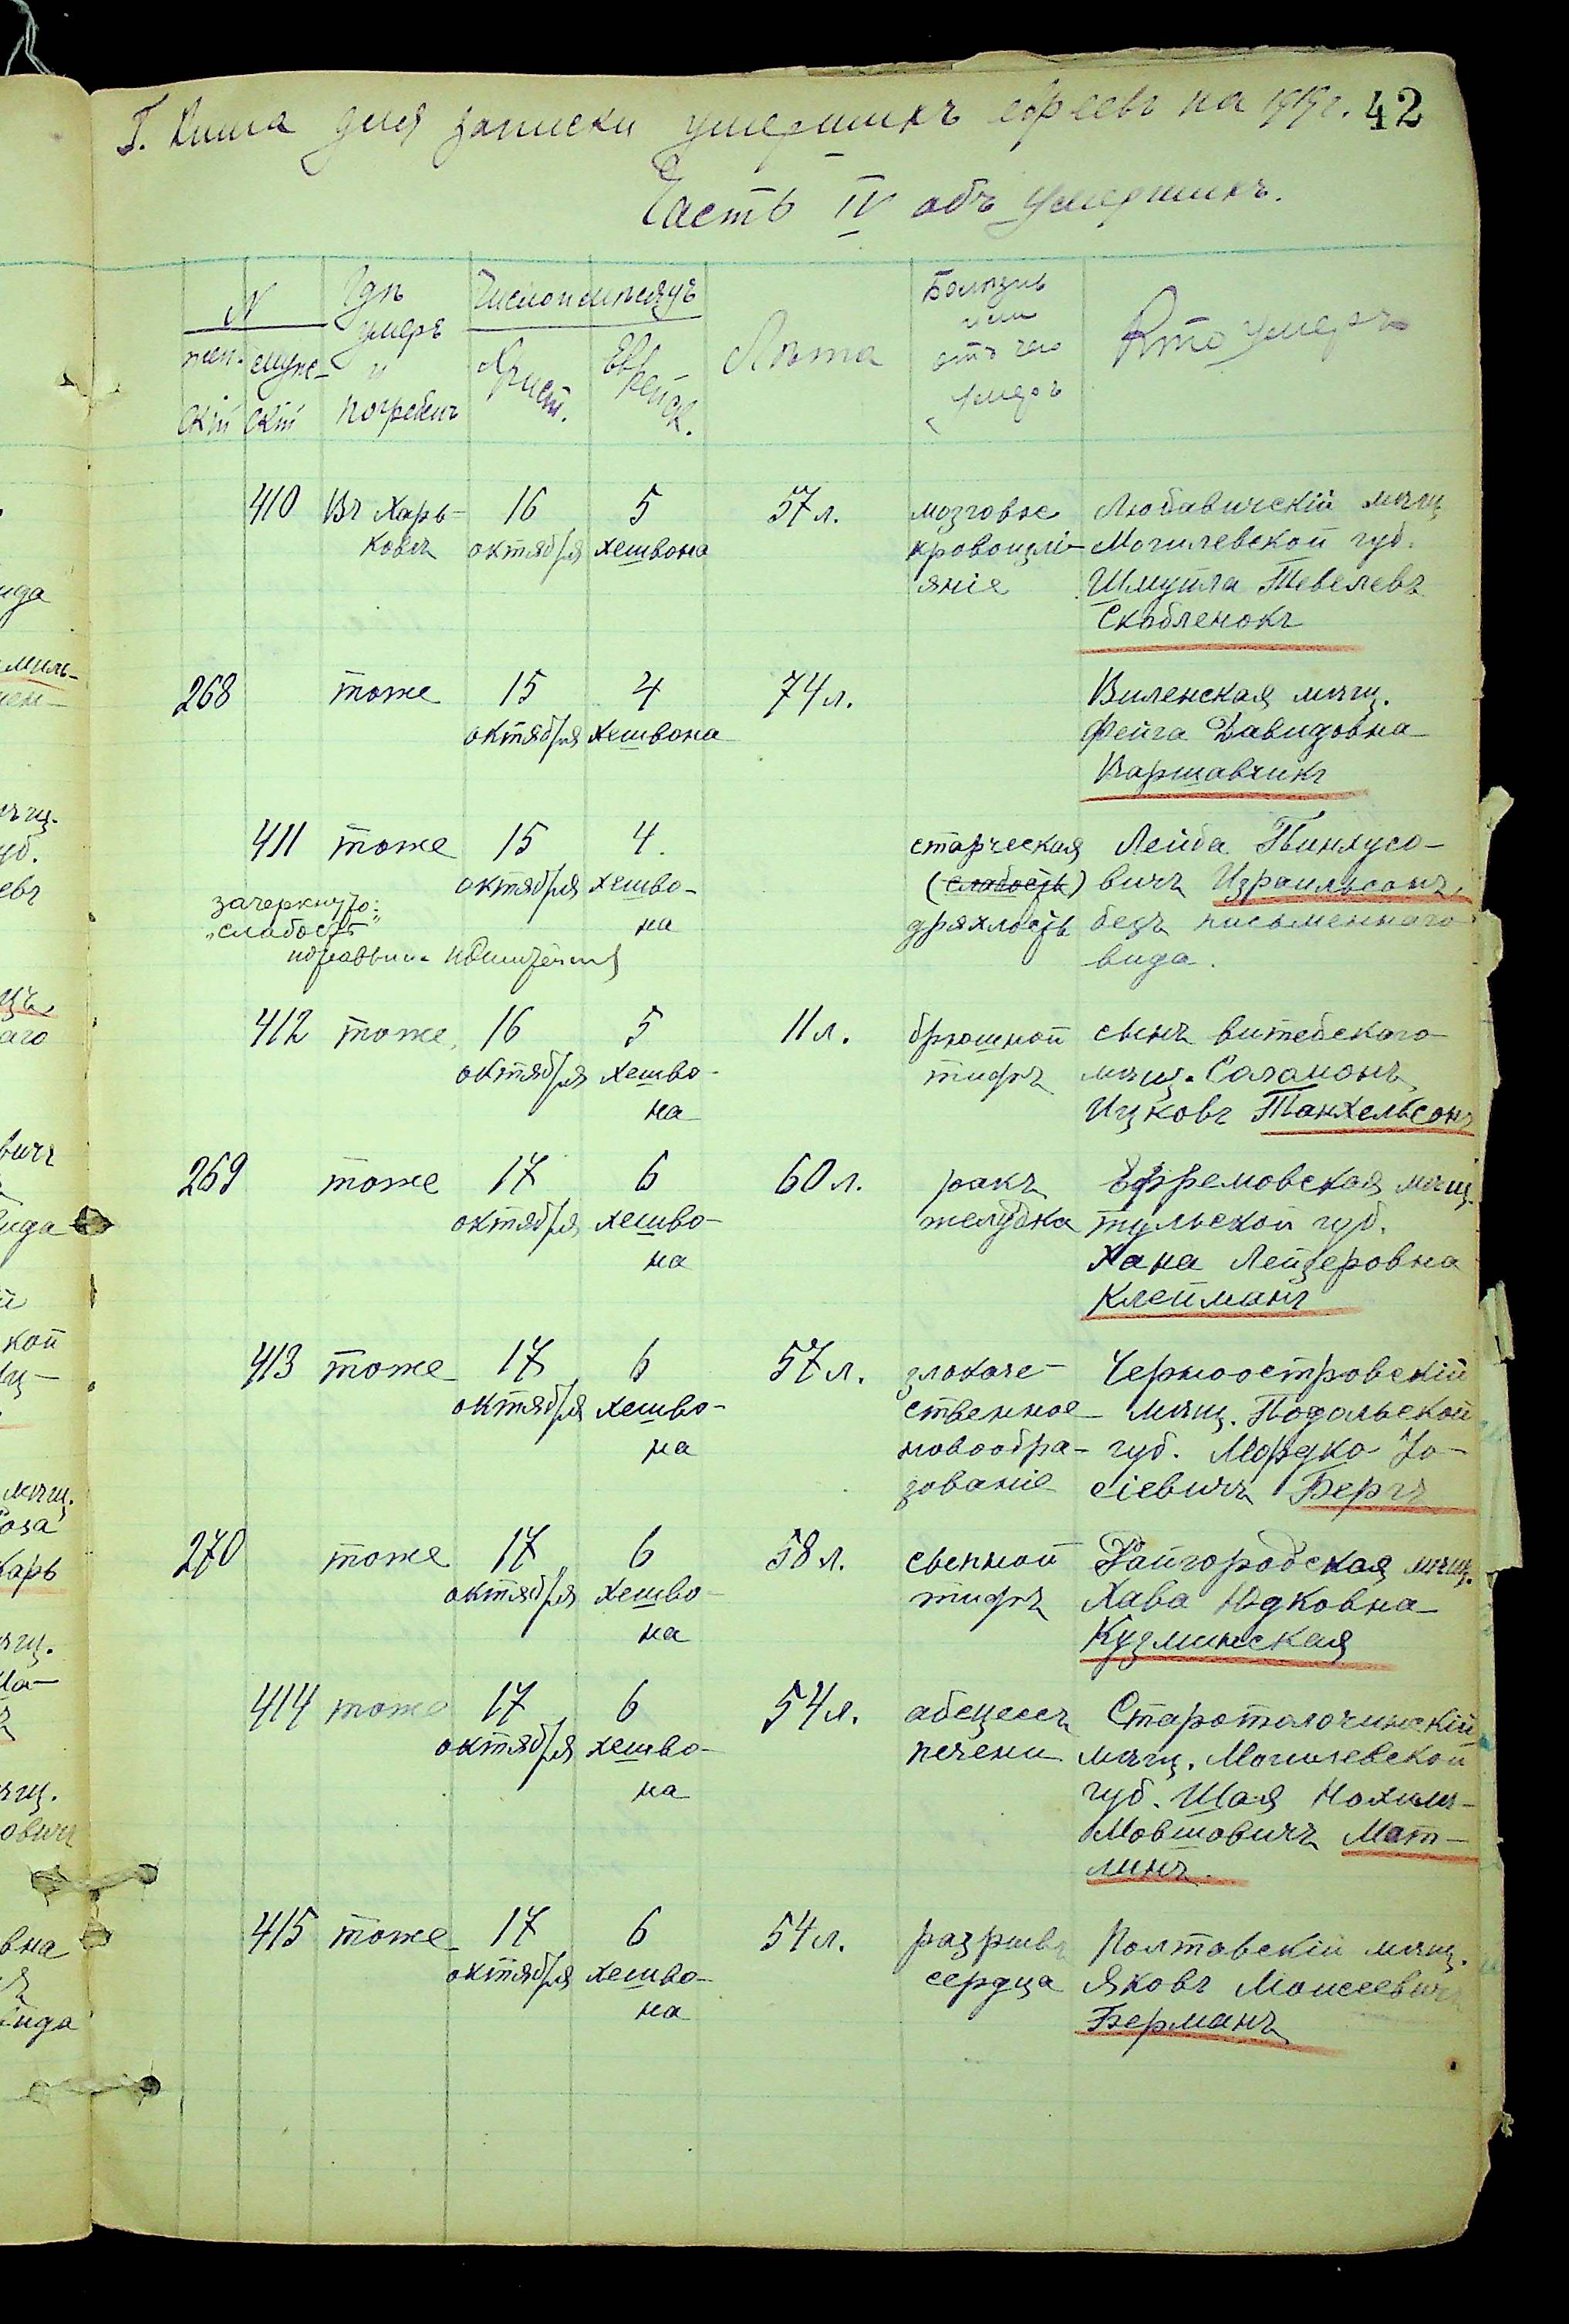 Г. Книга для записки умершихъ евреевъ на 1919 г. 42
Часть IV объ умершихъ.
№
жен-
скій
муж-
скій
Гдѣ
умеръ
и
погребенъ
Число и мѣсяцъ
Христ.
Еврейск.
Лѣта
Болѣзнь
или
отъ чего
умеръ
Кто умеръ
410 Въ Харь- 16 5 57 л. мозговое Любавичскій мѣщ
ковѣ октября хешвона кровоизлі- Могилевской губ.
яніе Шмуйла Тевелевъ
Скобленокъ
268 тоже 15 4 74 л. Виленская мѣщ.
октября хешвона Фейга Давидовна
Варшавчикъ
411 тоже 15 4. старческая Лейба Пинхусо-
октября хешво- (слабость) вичъ Израильсонъ,
зачеркнуто:
„слабость“
на дряхлость безъ письменного
вида.
412 тоже 16 5 11 л. брюшной сынъ витебскаго
октября хешво- тифъ мѣщ. Саламонъ
на Ицковъ Танхельсонъ
269 тоже 17 6 60 л. ракъ Ефремовская мѣщ.
октября хешво- желудка тульской губ.
на Хана Лейзеровна
Клейманъ
413 тоже 17 6 57 л. злокаче- Черноостровскій
октября хешво- ственное мѣщ. Подольской
на новообра- губ. Мордко Іо-
зованіе сіевичъ Бергъ
270 тоже 17 6 58 л. сыпной Райгородская мѣщ.
октября хешво- тифъ Хава Юдковна
на Кузминская
414 тоже 17 6 54 л. абсцессъ Старотолочинскій
октября хешво- печени мѣщ. Могилевской
на губ. Шая Нохим-
Мовшовичъ Мат-
линъ.
415 тоже 17 6 54 л. разрывъ Полтавскій мѣщ.
октября хешво- сердца Яковъ Моисеевичъ
на Берманъ